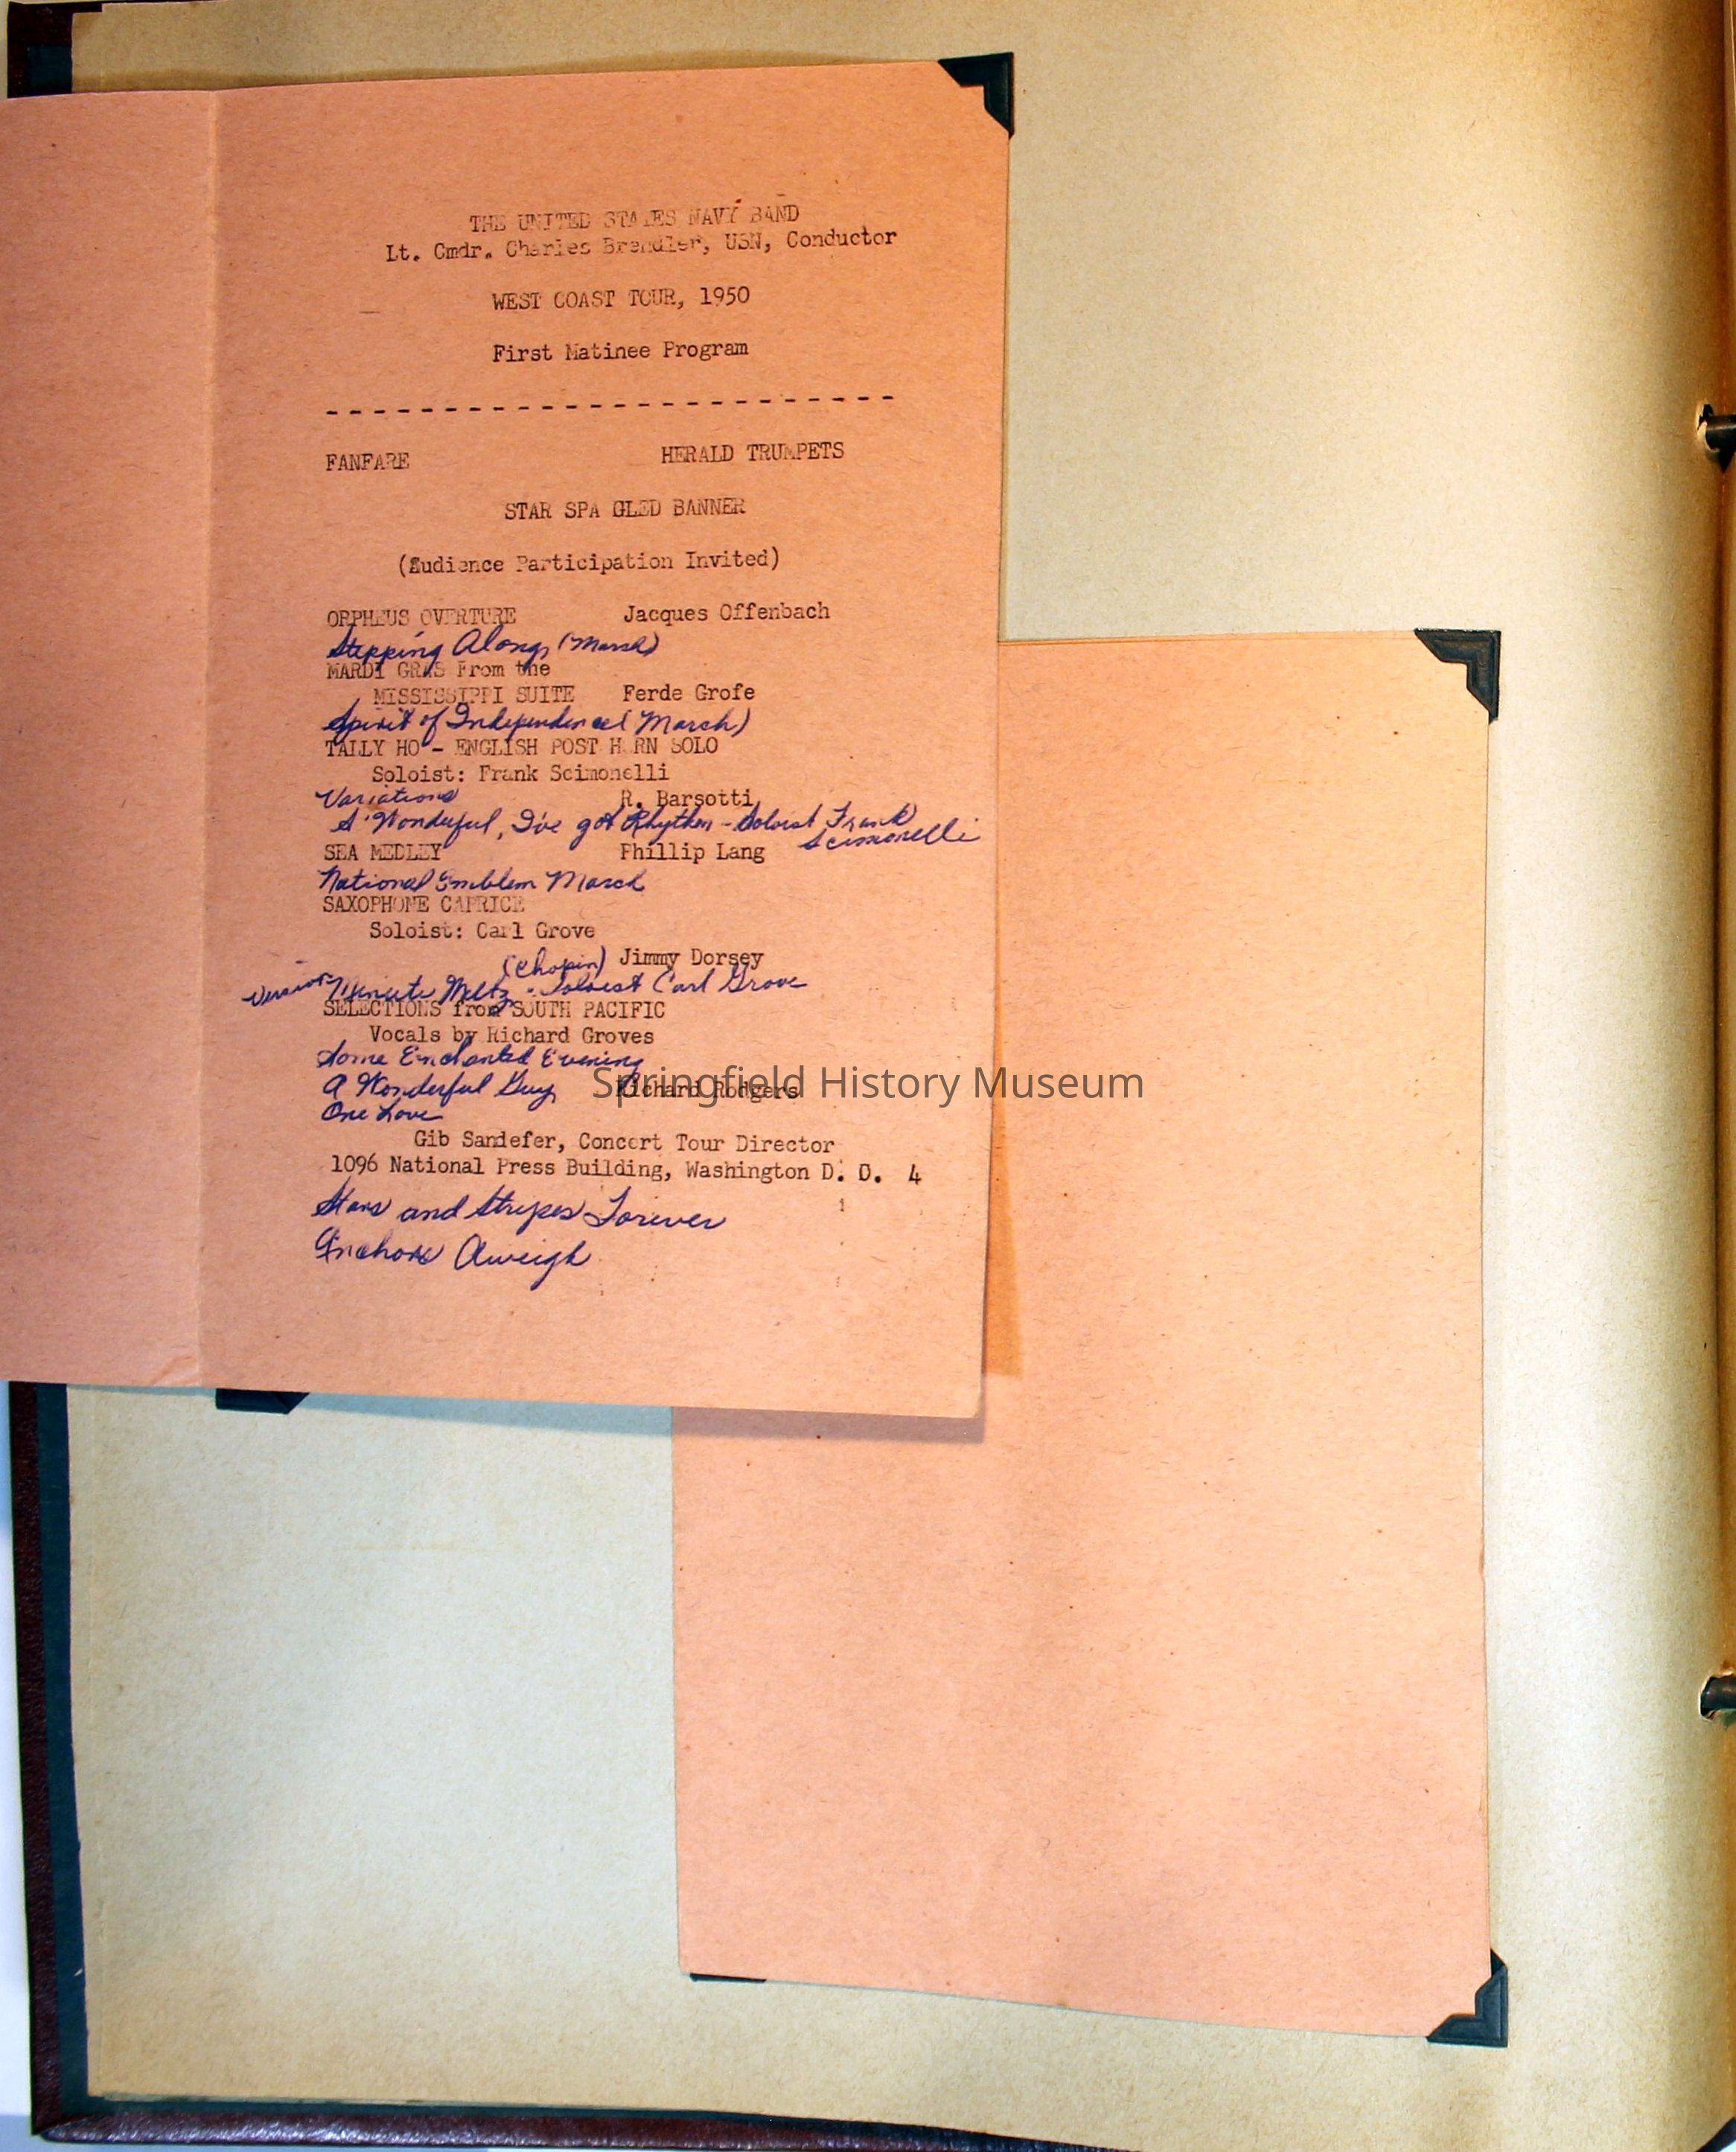 THE UNITED STATES NAVY BAND
Lt. Cmdr. Charles Brendler, USN, Conductor
WEST COAST TOUR, 1950
First Matinee Program
- - - - - - - - - - - - - - - - - - - - - - - -
FANFARE HERALD TRUMPETS
STAR SPA GLED BANNER
(Audience Participation Invited)
ORPHEUS OVERTURE Jacques Offenbach
Stepping Along (March)
MARDI GRAS From the
MISSISSIPPI SUITE Ferde Grofe
Spirit of Independence (March)
TALLY HO - ENGLISH POST H RN SOLO
Soloist: Frank Scimonelli
Variations R. Barsotti
S'Wonderful, I've got Rhythm - Soloist Frank
Scimonelli
SEA MEDLEY Phillip Lang
National Emblem March
SAXOPHONE CAPRICE
Soloist: Carl Grove
(Chopin) Jimmy Dorsey
Minute Waltz - Soloist Carl Grove
SELECTIONS from SOUTH PACIFIC
Vocals by Richard Groves
Some Enchanted Evening
A Wonderful Guy Richard Rodgers
One Love
Springfield History Museum
Gib Sandefer, Concert Tour Director
1096 National Press Building, Washington D. C. 4
Stars and Stripes Forever
Anchors Aweigh